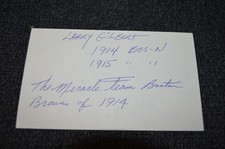 LARRY GILBERT
1914 BOS-N
1915 " "
The Miracle Team Boston
Braves of 1914